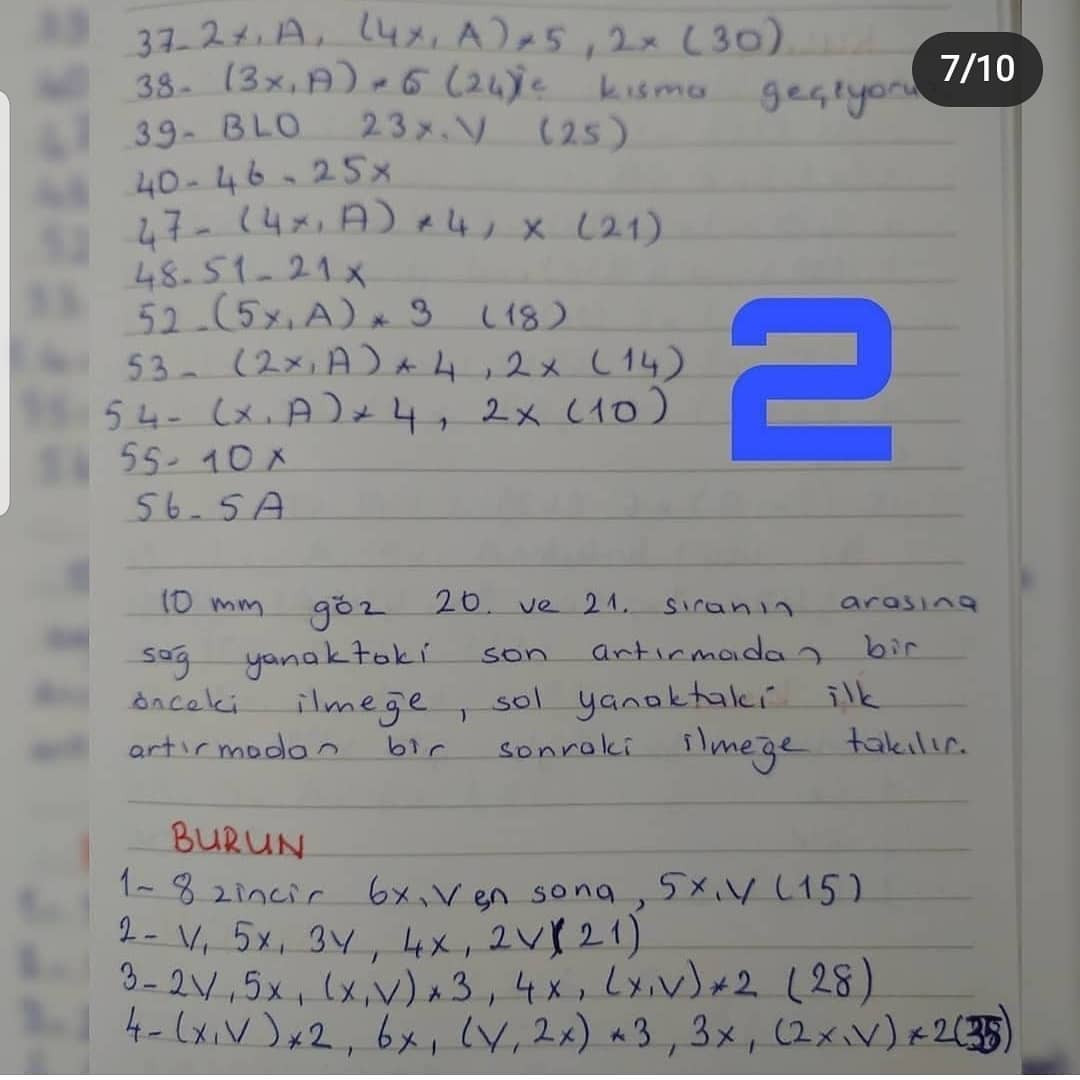 37-2x,A, (4x,A)*5, 2x (30)
7/10
38- (3x,A)*6 (24) kısma geçiyoru
39- BLO 23x.V (25)
40-46-25x
47- (4x,A)*4, x (21)
48-51-21x
52-(5x,A)*3 (18)
2
53- (2x,A)*4, 2x (14)
54- (x.A)*4, 2x (10)
55- 10x
56-5A
10 mm göz 20. ve 21. sıranın arasına
sağ yanaktaki son artırmadan bir
önceki ilmeğe, sol yanaktaki ilk
artırmadan bir sonraki ilmeğe takılır.
BURUN
1- 8 zincir 6x,V en sona, 5x,V (15)
2- V, 5x, 3V, 4x, 2V(21)
3-2V,5x, (x,V)*3, 4x, (x,V)*2 (28)
4-(x,V)*2, 6x, (V,2x)*3, 3x, (2x,V)*2(35)